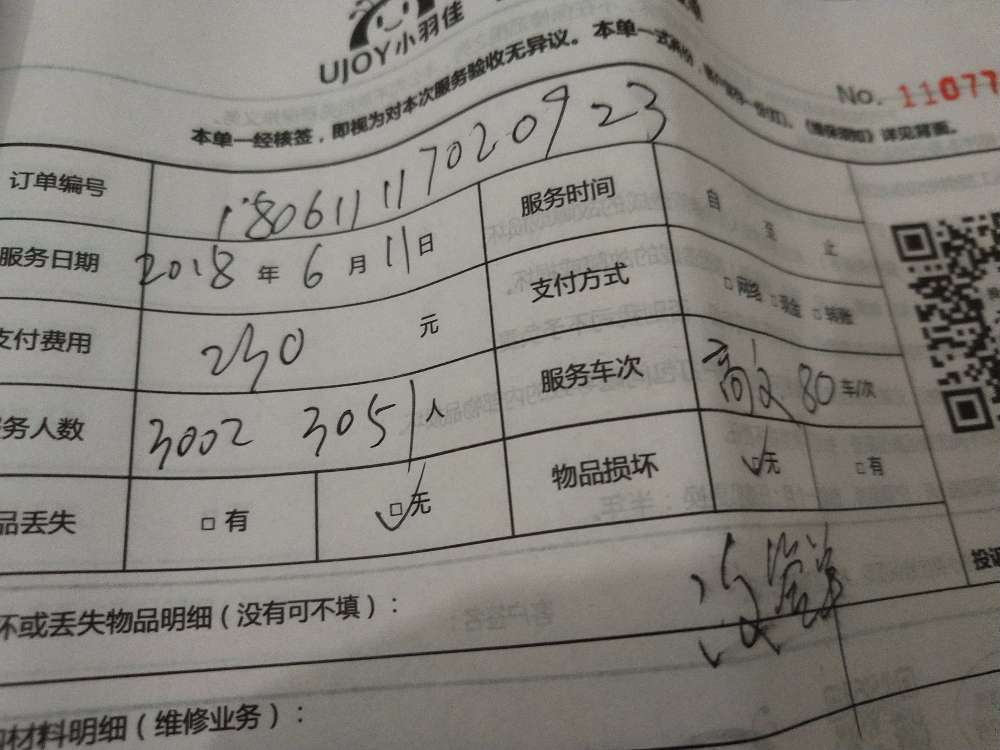 UJOY小羽佳
No. 11077
本单一经核签，即视为对本次服务验收无异议。本单一式两份，
详见背面。
订单编号 18061117020923
服务日期 2018年6月11日 服务时间 自 至 止
支付费用 230元 支付方式 □网络 □现金 □转账
务人数 3002 3051人 服务车次 80车/次
品丢失 □有 ☑无 物品损坏 ☑无 □有
坏或丢失物品明细（没有可不填）：
投
材料明细（维修业务）：